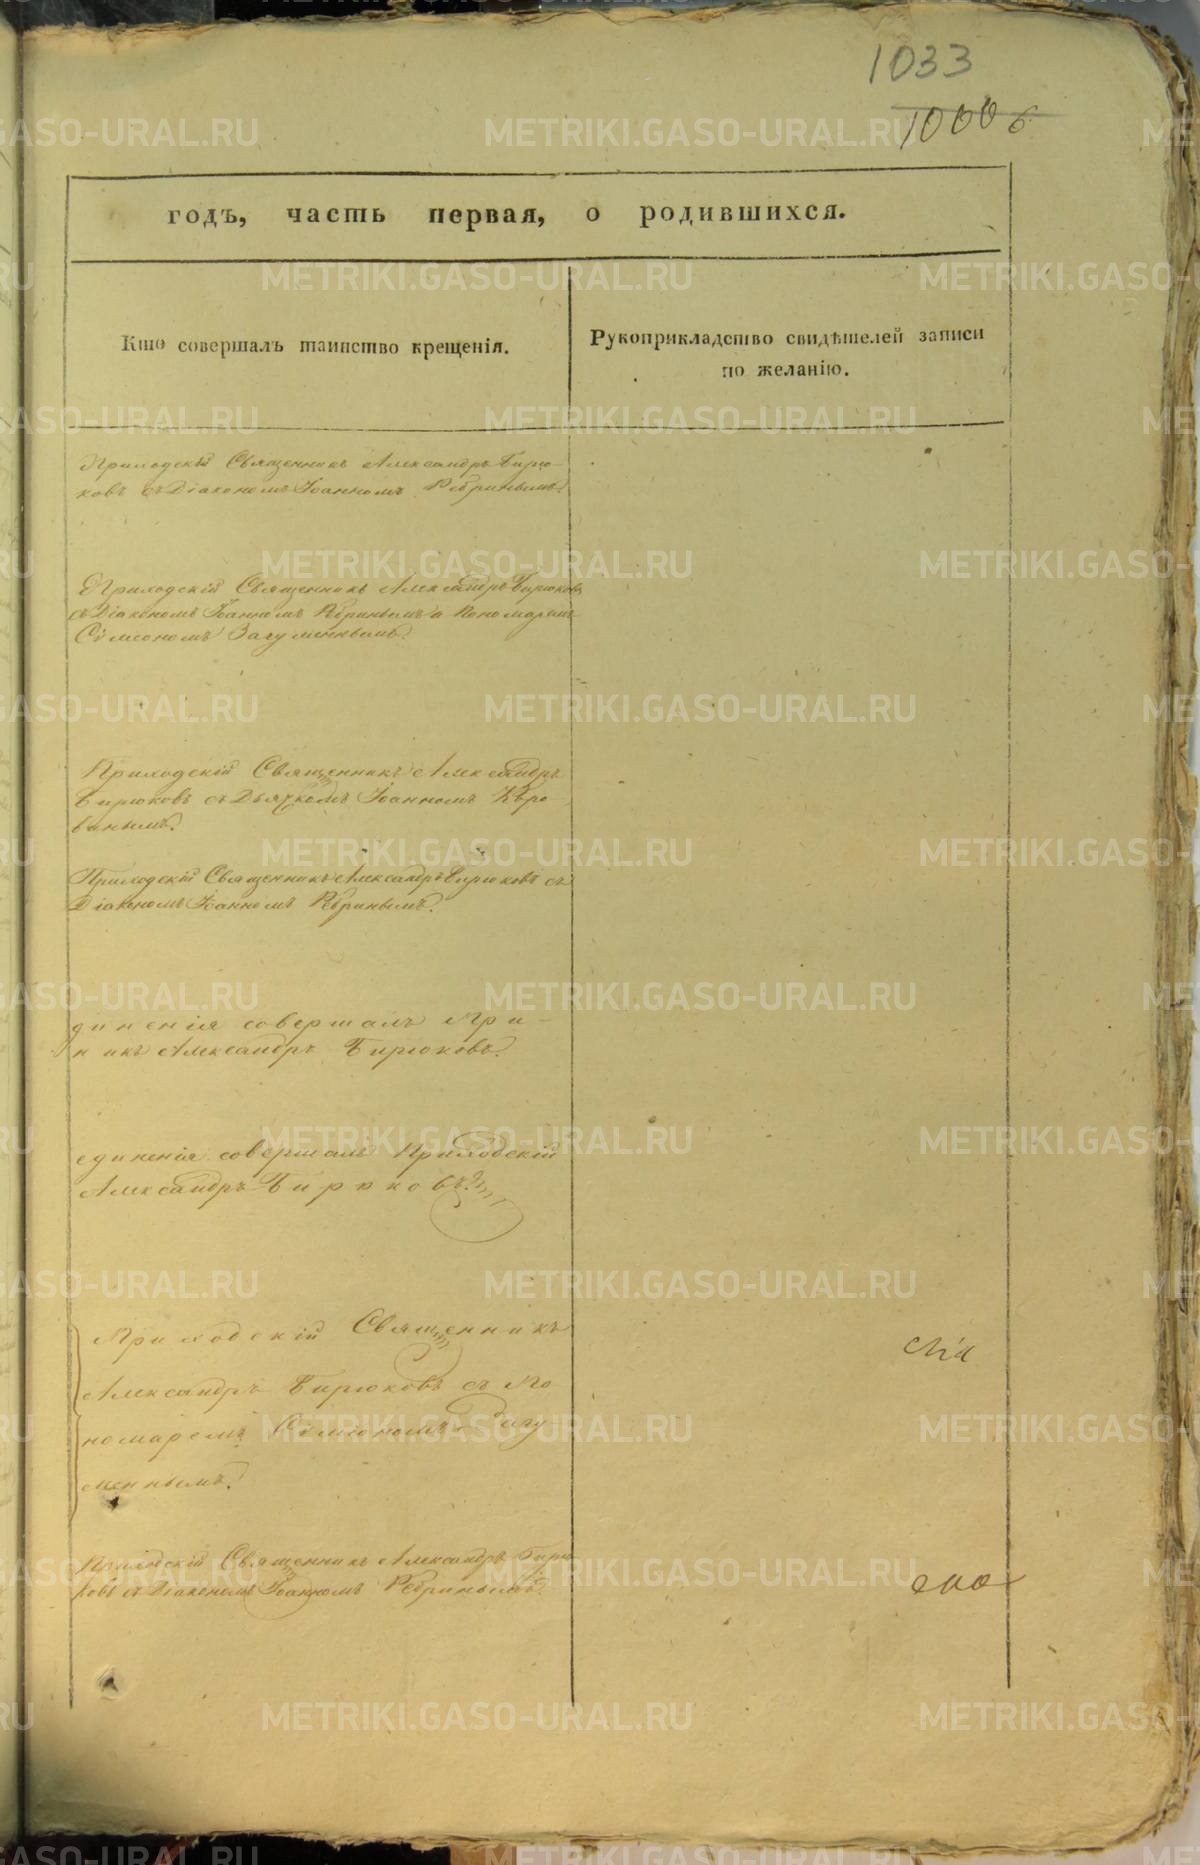 1033
1000 б
годъ, часть первая, о родившихся.
Кто совершалъ таинство крещенія.
Рукоприкладство свидѣтелей записи
по желанію.
Приходскій Священникъ Александръ Бирю-
ковъ съ Діакономъ Іоанномъ Ребринымъ.
Приходскій Священникъ Александръ Бирюковъ
съ Діакономъ Іоанномъ Ребринымъ и Пономаремъ
Сѵмеономъ Загуменнымъ.
Приходскій Священникъ Александръ
Бирюковъ съ Дьячкомъ Іоанномъ
Приходскій Священникъ Александръ Бирюковъ съ
Діакономъ Іоанномъ Ребринымъ.
диненія совершалъ При-
никъ Александръ Бирюковъ.
единенія совершалъ Приходскій
Александръ Бирюковъ.
Приходскій Священникъ
Александръ Бирюковъ съ По-
номаремъ Сѵмеономъ Загу-
меннымъ.
Приходскій Священникъ Александръ Бирю-
ковъ съ Діакономъ Іоанномъ Ребринымъ.
METRIKI.GASO-URAL.RU